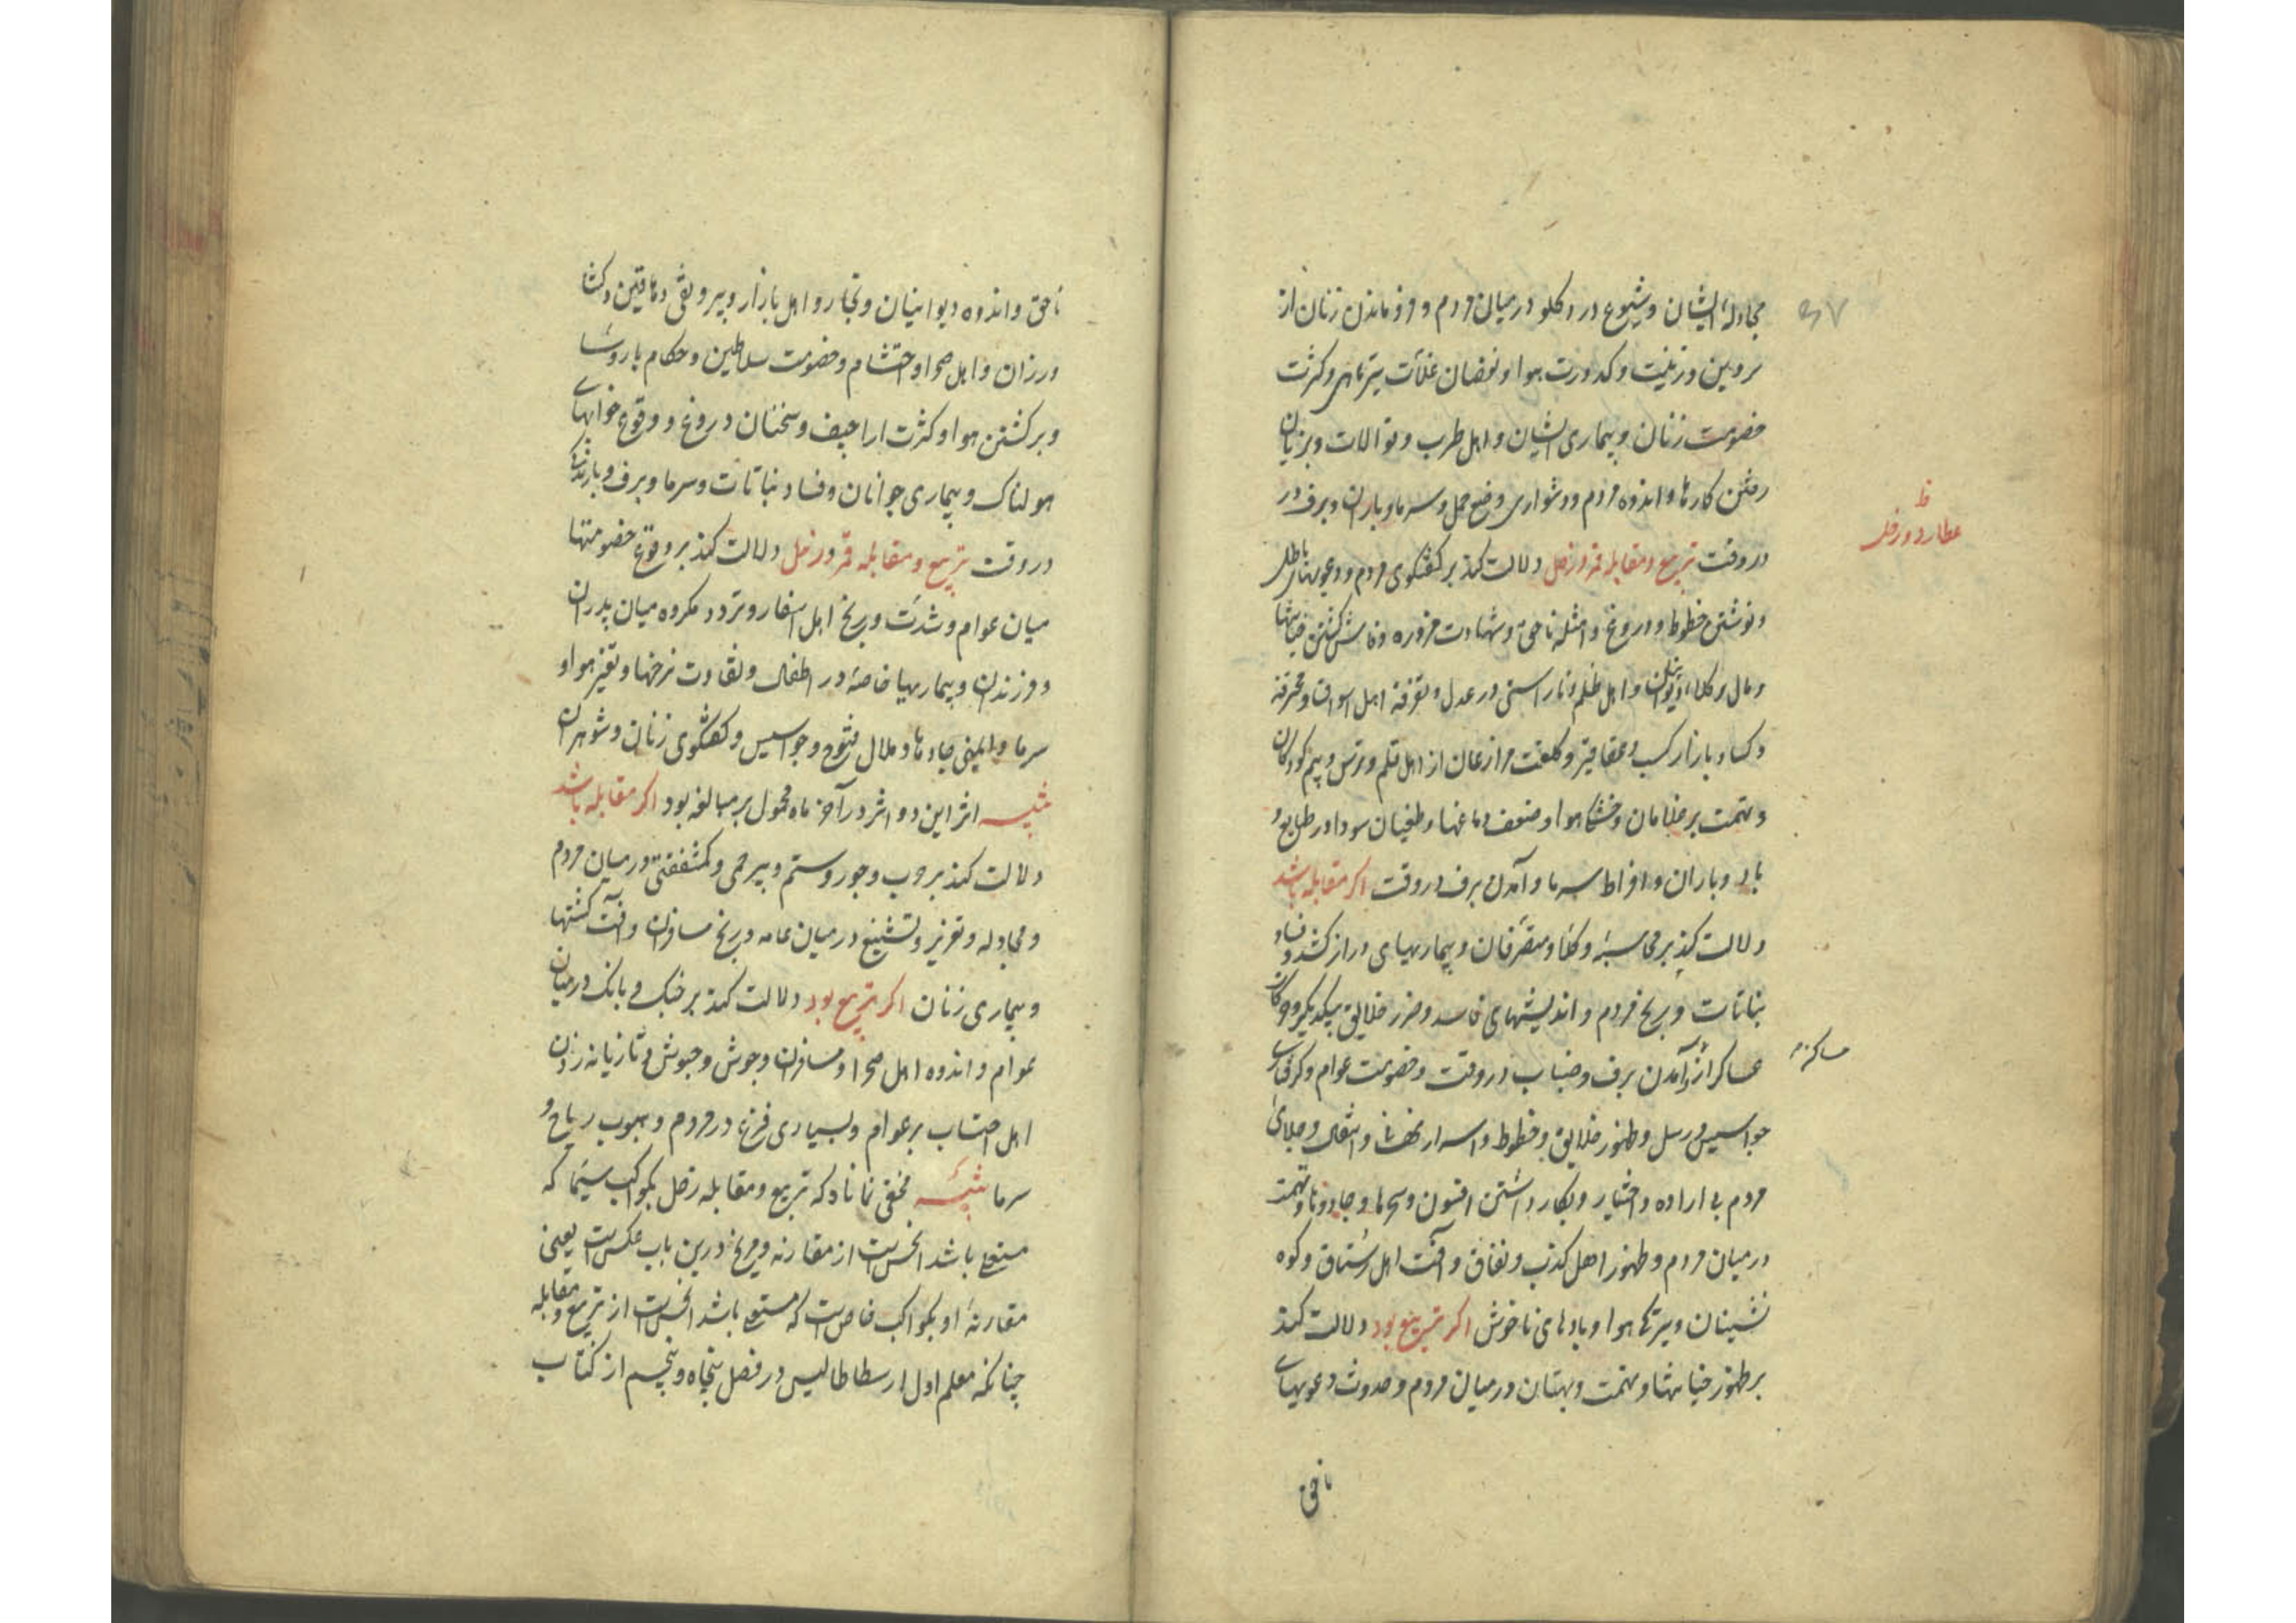 مجادلهٔ ایشان و شیوع درد کلو در میان مردم و فروماندن زنان از
و زینت و کدورت هوا و نقصان غلات تیرماهی و کثرت
خصومت زنان و بیماری ایشان و اهل طرب و توالات و بزیان
رفتن کارها و اندوه مردم و دشواری وضع حمل و سرما و باران و برف در
در وقت تربیع و مقابله قمر و زحل دلالت کند بر کفتکوی مردم و دعویهای باطل
ظ
عطارد و زحل
و نوشتن خطوط و دروغ و امثله ناحق و شهادت مزوره و فاش کشتن خیانتها
و مال وکلا و دیوانیان و اهل ظلم و ناراستی در عدل و تفرقه اهل اسواق و محترفه
و کساد بازار کسب و عقاقیر و کلفت از اهل قلم و ترس و بیم کودکان
و تهمت بر غلامان و خشکی هوا و ضعف دماغها و طغیان سودا در طبایع و
باد و باران و افراط سرما و آمدن برف در وقت اکر مقابله باشد
دلالت کند بر محاسبهٔ وکلا و متصرفان و بیماریهای دراز کشد و فساد
نباتات و رنج مردم و اندیشهای فاسد و ضرر خلایق بیکدیکر و حرکات
عساکر از آمدن برف و ضباب در وقت و خصومت عوام و کرفتاری
جواسیس و رسل و ظهور خلایق و خطوط و اسرار نهانی و انتقال و جلای
مردم بی اراده و اختیار و بکار داشتن افسون و سحرها و جادوئیها و تهمت
در میان مردم و ظهور اهل کذب و نفاق و آفت اهل رستاق و کوه
نشینان و تیرکی هوا و بادهای ناخوش اکر تربیع بود دلالت کند
بر ظهور خیانتها و تهمت و بهتان در میان مردم و حدوث دعویهای
ناحق
ناحق و اندوه دیوانیان و تجار و اهل بازار و بیرونقی دهاقین و کشا
ورزان و اهل صحرا و احتشام و خصومت سلاطین و حکام با روسا
و برکشتن هوا و کثرت اراجیف و سخنان دروغ و وقوع خوابهای
هولناک و بیماری جوانان و فساد نباتات و سرما و برف و بارندکی
در وقت تربیع و مقابله قمر و زحل دلالت کند بر وقوع خصومتها
میان عوام و شدت و رنج اهل اسفار و تردد مکروه میان پدران
و فرزندان و بیماریها خاصه در اطفال و تفاوت نرخها و تغیر هوا و
سرما و ایمنی جادها و ملال فتوح و جواسیس و کفتکوی زنان و شوهران
تنبیه اثر این دو اثر در آخر ماه محمول بر مبالغه بود اکر مقابله باشد
دلالت کند بر حرب و جور و ستم و بیرحمی و کمشفقتی در میان مردم
و مجادله و تعزیر و تشنیع در میان عامه و رنج مسافران و آفت کشتها
و بیماری زنان اکر تربیع بود دلالت کند بر جنک و بانک در میان
عوام و اندوه اهل صحرا و مسافران و جوش و جیوش و تازیانه زدن
اهل احتساب بر عوام و بسیاری فزع در مردم و هبوب ریاح و
سرما تنبیه مخفی نماناد که تربیع و مقابله زحل بکواکب سیما که
مستعلی باشد انحس است از مقارنه و مریخ درین باب عکس است یعنی
مقارنهٔ او بکواکب خاص است که مستعلی باشد انحس است از تربیع و مقابله
چنانکه معلم اول ارسطاطالیس در فصل پنجاه و پنجم از کتاب